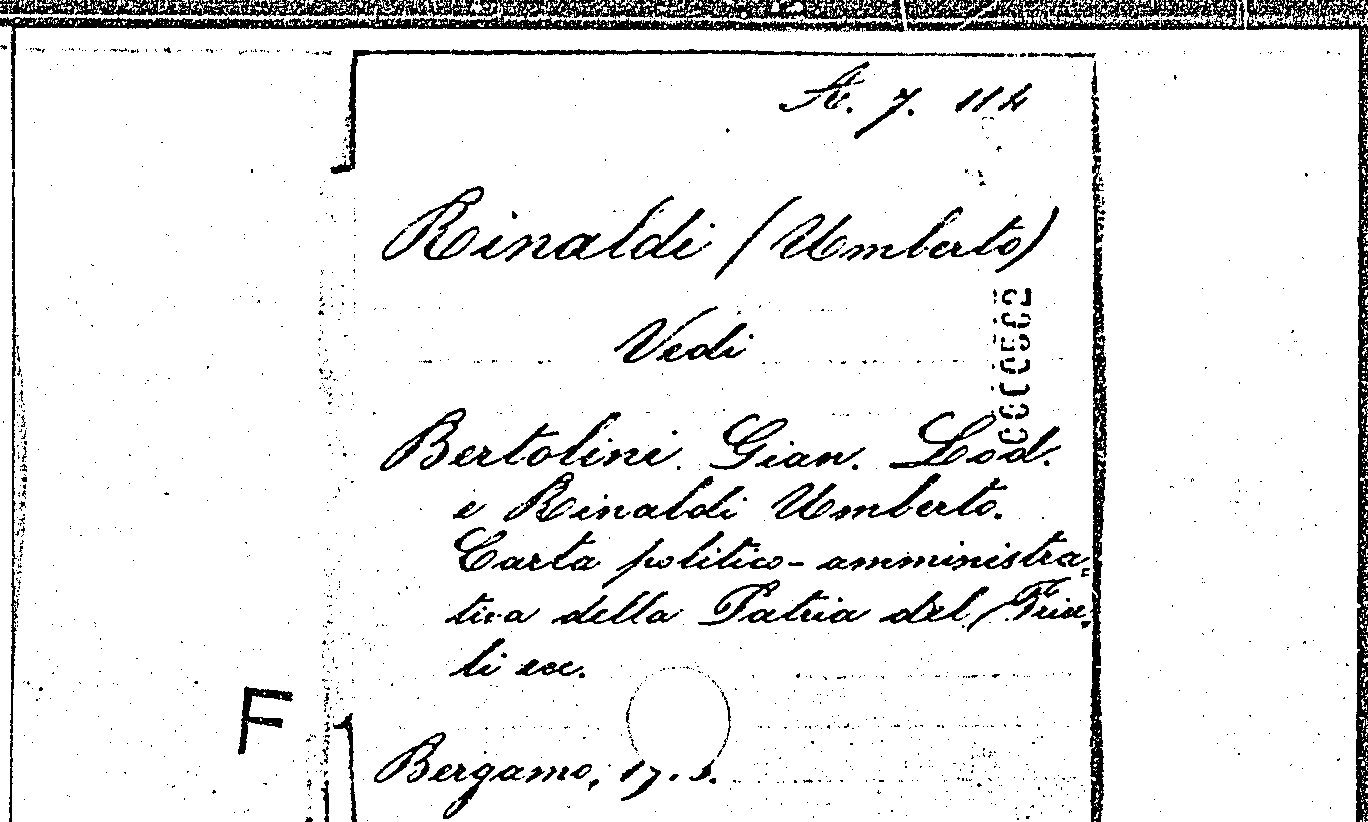 A. 7. 114
Rinaldi (Umberto)
Vedi
Bertolini Gian. Lod.
e Rinaldi Umberto.
Carta politico-amministra-
tiva della Patria del Friu-
li ecc.
Bergamo, 17. s.
0000502
F